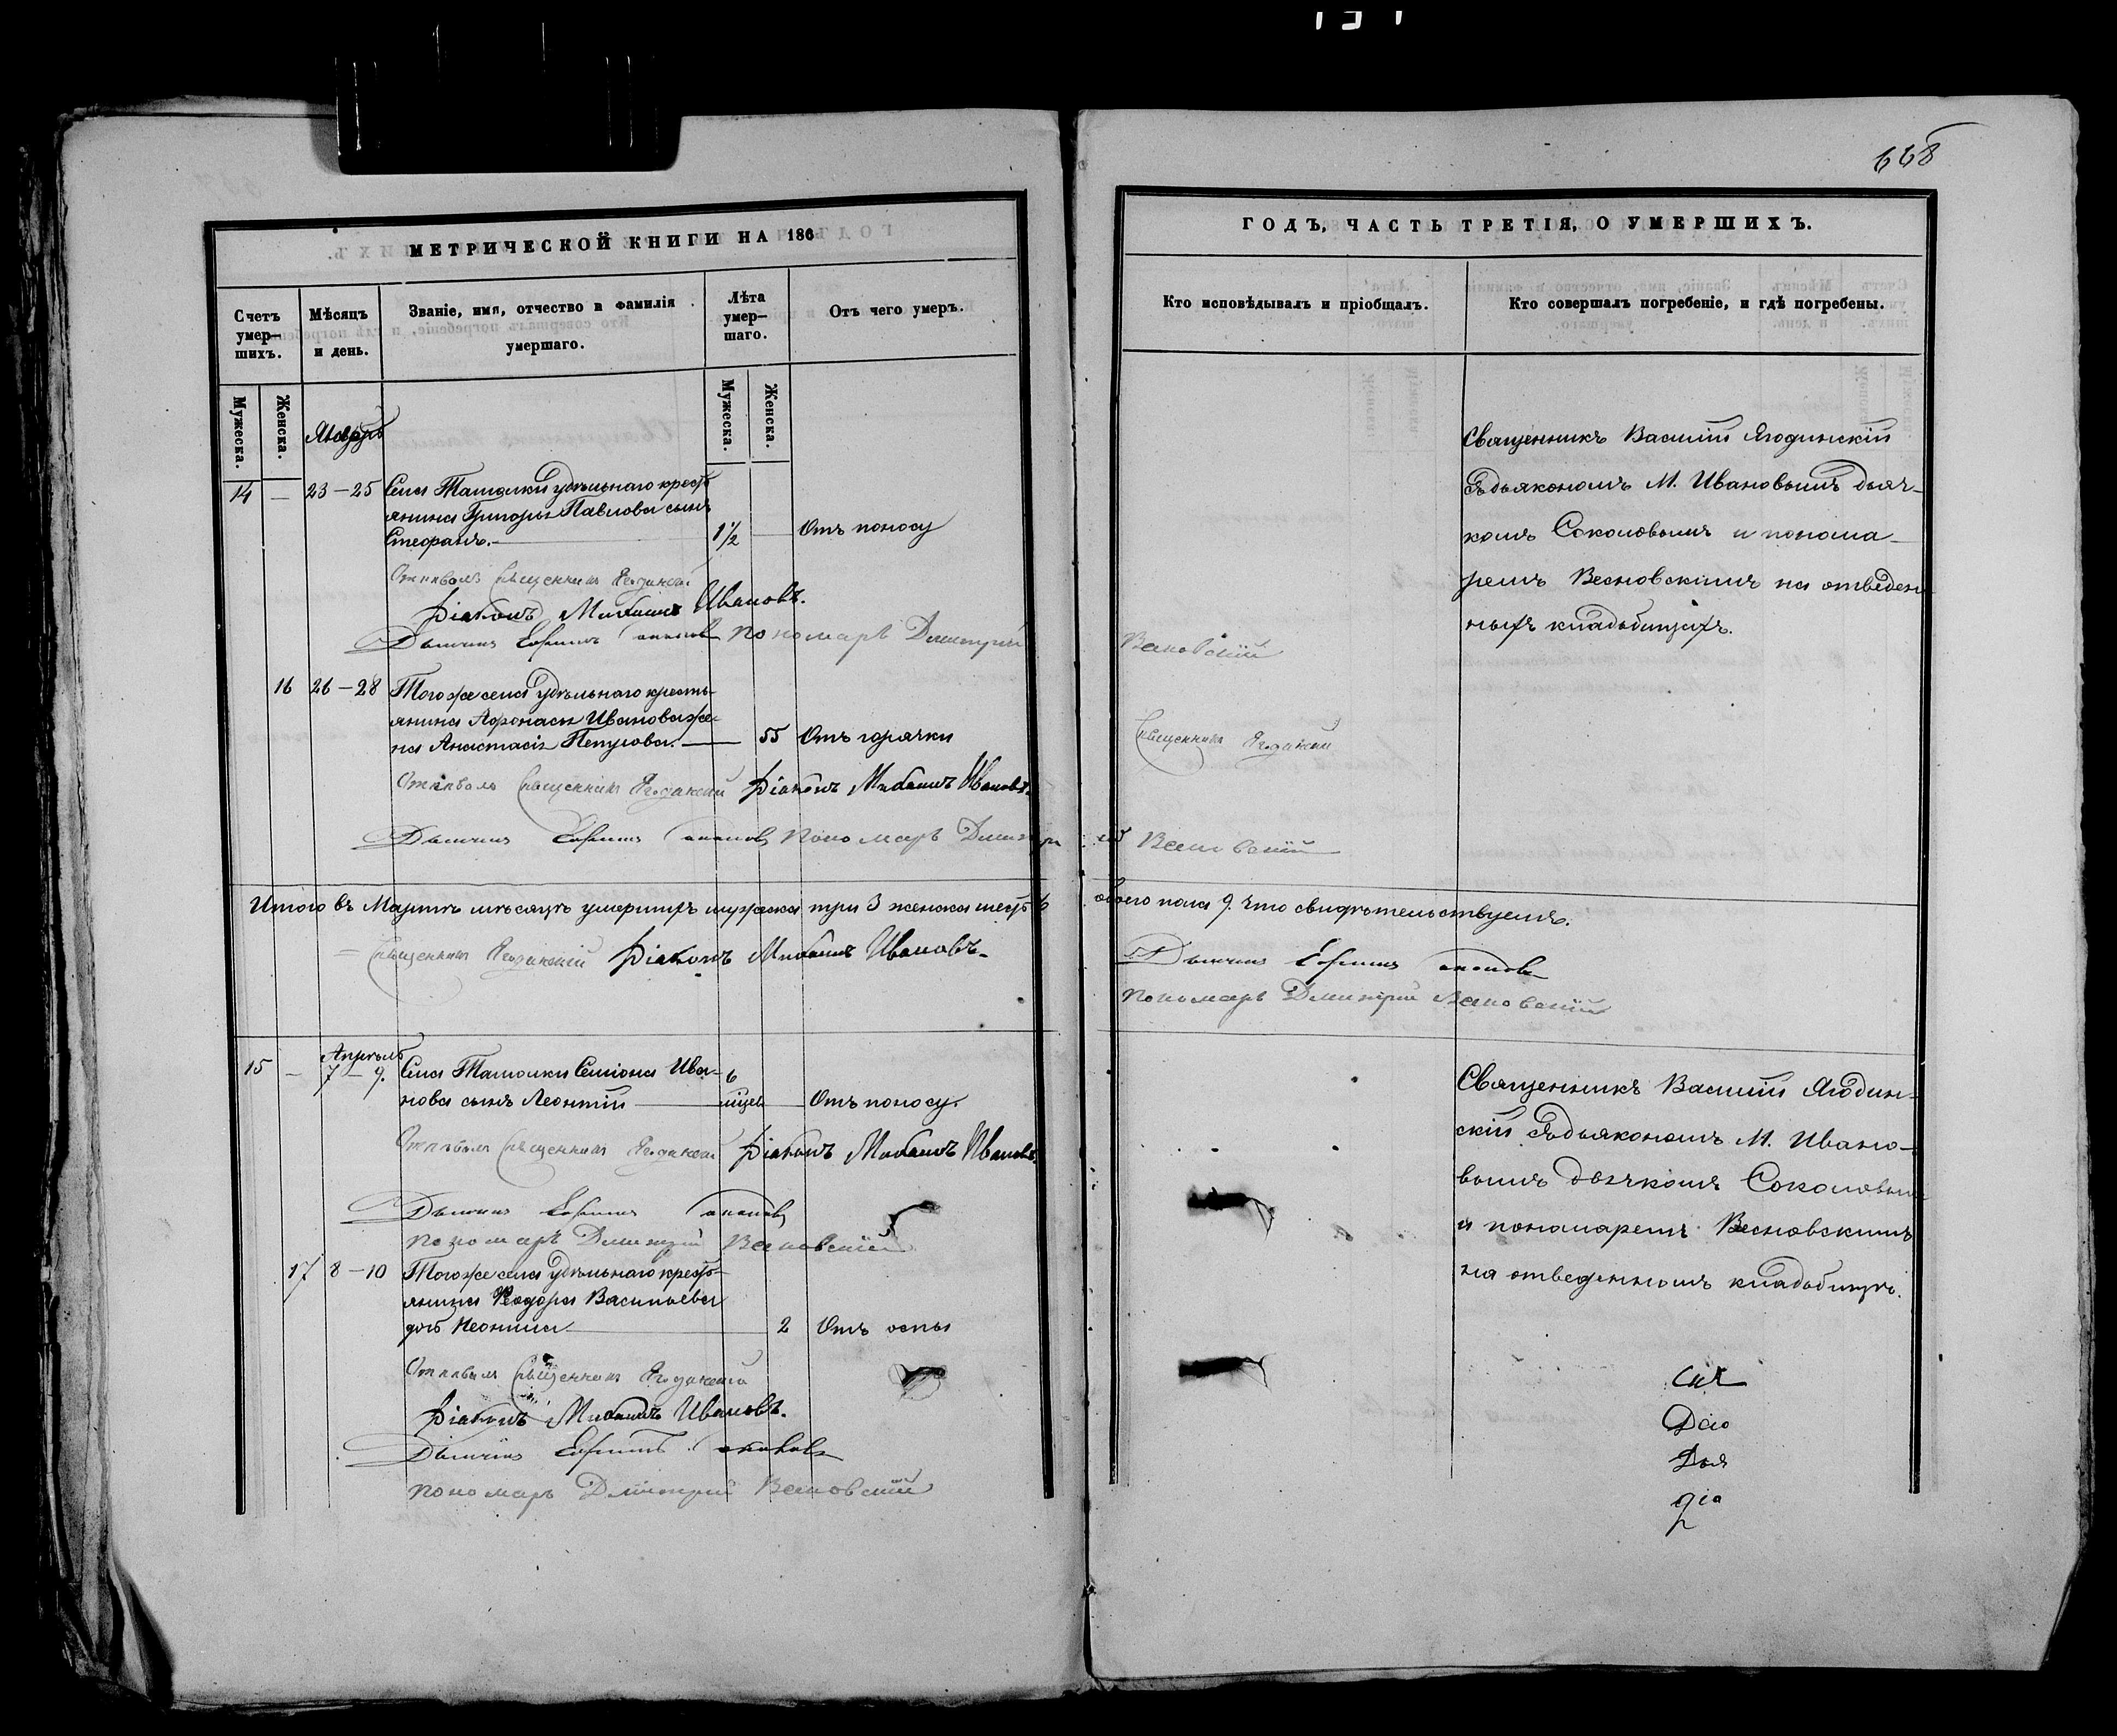 668
МЕТРИЧЕСКОЙ КНИГИ НА 186
ГОДЪ, ЧАСТЬ ТРЕТІЯ, О УМЕРШИХЪ.
Счетъ умер—шихъ.
Мѣсяцъ и день.
Званіе, имя, отчество и фамилія умершаго.
Лѣта умер—шаго.
Отъ чего умеръ.
Кто исповѣдывалъ и пріобщалъ.
Кто совершалъ погребеніе, и гдѣ погребены.
Мужеска.
Женска.
Мужеска.
Женска.
14 — 23 — 25 Села Ташолки удѣльнаго кресть
янина Григорья Павлова сынъ
Стефанъ. — 1½ — Отъ поносу
Священникъ Василій Ягодинскій
съ дьякономъ М. Ивановымъ дьяч-
комъ Соколовымъ и понома-
ремъ Весновскимъ на отведен
ныхъ кладбищахъ.
Отпѣвалъ Священникъ Ягодинскій
Діаконъ Михаилъ Ивановъ.
Дьячекъ Ефимъ Соколовъ Пономарь Дмитрій
Весновскій
16 26 — 28 Тогоже села удѣльнаго кресть-
янина Афонасья Иванова же-
на Анастасія Петрова. — 55 Отъ горячки
Священникъ Ягодинскій
Отпѣвалъ Священникъ Ягодинскій Діаконъ Михаилъ Ивановъ.
Дьячекъ Ефимъ Соколовъ Пономарь Дмитрій Весновскій
Итого въ Мартѣ мѣсяцѣ умершихъ мужеска три 3 женска шесть 6 обоего пола 9. Что свидѣтельствуемъ.
Священникъ Ягодинскій Діаконъ Михаилъ Ивановъ.
Дьячекъ Ефимъ Соколовъ
Пономарь Дмитрій Весновскій
Апрѣль
15 — 7 — 9. Села Ташолки Семіона Ива-
нова сынъ Леонтій — 6 мѣсец — Отъ поносу.
Священникъ Василій Ягодин-
скій съ дьякономъ М. Ивано-
вымъ дьячкомъ Соколовым
и пономаремъ Весновскимъ
на отведенномъ кладбищѣ.
Отпѣвалъ Священникъ Ягодинскій Діаконъ Михаилъ Ивановъ.
Дьячекъ Ефимъ Соколовъ
Пономарь Дмитрій Весновскій
17 8 — 10 Тогоже села удѣльнаго кресть-
янина Феодора Васильева
дочь Неонила — 2 Отъ оспы
Отпѣвалъ Священникъ Ягодинскій
Діаконъ Михаилъ Ивановъ.
Дьячекъ Ефимъ Соколовъ
Пономарь Дмитрій Весновскій
Дья